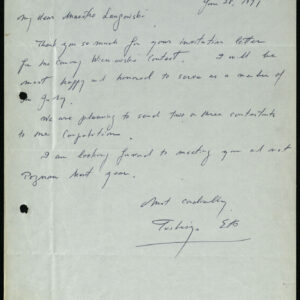 Jan 28, 1971
My dear Maestro
Thank you so much for your invitation letter
for the coming Wieniawski Contest. I will be
most happy and honored to serve as a member of
the jury.
We are planning to send two or three contestants
to the Competition.
I am looking forward to meeting you at
Poznan next year.
Most cordially,
Toshiya Eto